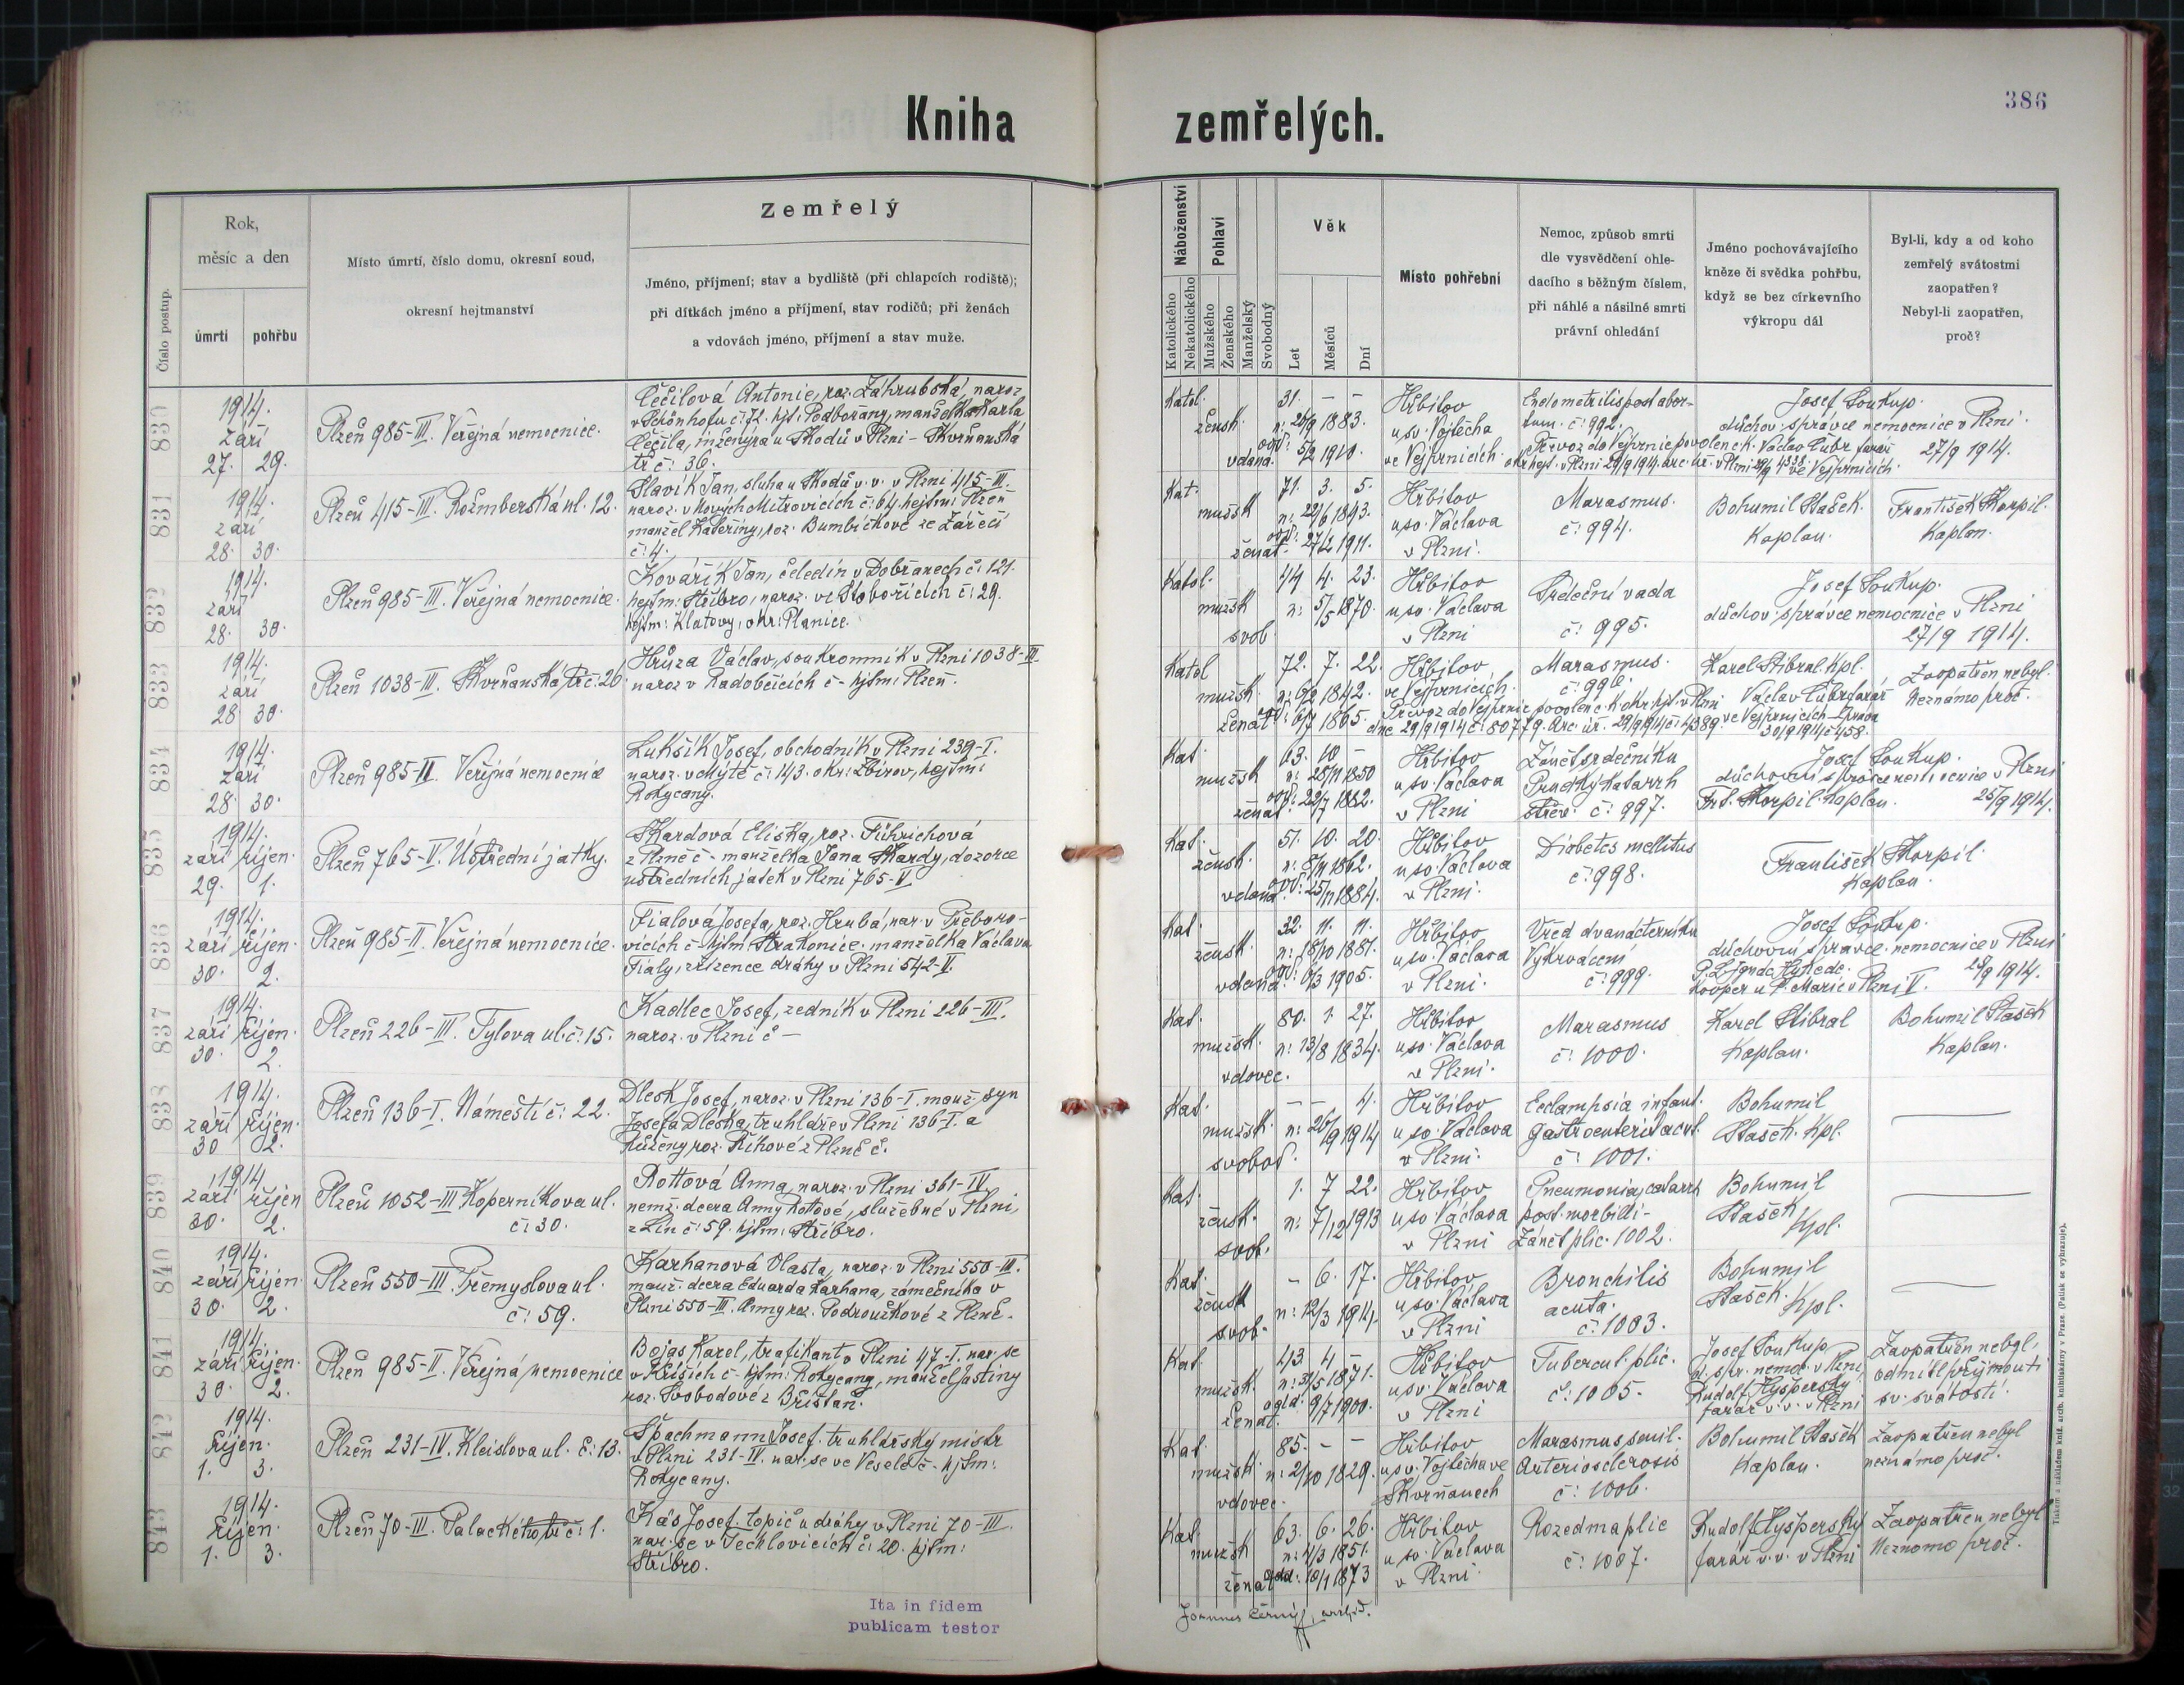 386
Kniha zemřelých.
Číslo postup.
Rok,
měsíc a den
úmrtí
pohřbu
Místo úmrtí, číslo domu, okresní soud,
okresní hejtmanství
Zemřelý
Jméno, příjmení; stav a bydliště (při chlapcích rodiště);
při dítkách jméno a příjmení, stav rodičů; při ženách
a vdovách jméno, příjmení a stav muže.
Náboženství
Katolického
Nekatolického
Pohlaví
Mužského
Ženského
Manželský
Svobodný
Věk
Let
Měsíců
Dní
Místo pohřební
Nemoc, způsob smrti
dle vysvědčení ohle-
dacího s běžným číslem,
při náhlé a násilné smrti
právní ohledání
Jméno pochovávajícího
kněze či svědka pohřbu,
když se bez církevního
výkropu dál
Byl-li, kdy a od koho
zemřelý svátostmi
zaopatřen?
Nebyl-li zaopatřen,
proč?
830
1914.
září
27. 29.
Plzeň 985-III. Veřejná nemocnice.
Čečilová Antonie, roz. Záhrubská, naroz.
v Schönhofu č: 72. hjt: Podbořany, manželka Karla
Čečila, inženýra u Škodů v Plzni - Skvrňanská
tř č: 36.
Katol.
žensk.
vdaná.
31. - -
n: 26/9 1883.
odd: 5/2 1910.
Hřbitov
u sv. Vojtěcha
ve Vejprnicích.
Endometritis post abor-
tum. č: 992.
Převoz do Vejprnic povolen c.k.
okr. hejt. v Plzni 29/9 1914.
Josef Soukup.
důchov. správce nemocnice v Plzni.
Václav Lubr farář
ve Vejprnicích.
27/9 1914.
831
1914.
září
28. 30.
Plzeň 415-III. Rožmberská ul. 12.
Slavík Jan, sluha u Škodů v. v. v Plzni 415-III.
naroz. v Nových Mitrovicích č: 64, hejtm: Plzeň
manžel Kateřiny, roz. Bumbičkové ze Zářečí
č: 4.
Kat.
mužsk
ženat.
71. 3. 5.
n: 22/6 1843.
odd: 27/2 1911.
Hřbitov
u sv. Václava
v Plzni.
Marasmus.
č: 994.
Bohumil Stašek.
Kaplan.
František Škorpil.
Kaplan.
832
1914.
září
28. 30.
Plzeň 985-III. Veřejná nemocnice.
Kovářík Jan, čeledín v Dobřanech č: 121.
hejtm: Stříbro, naroz. ve Stobořicích č: 29.
hejtm: Klatovy, okr: Planice.
Katol.
mužsk
svob.
44 4. 23.
n: 5/5 1870.
Hřbitov
u sv. Václava
v Plzni
Srdeční vada
č: 995.
Josef Soukup.
důchov. správce nemocnice v Plzni
27/9 1914.
833
1914.
září
28 30.
Plzeň 1038-III. Skvrňanská tř č: 26
Hrůza Václav, soukromník v Plzni 1038-III.
naroz v Radobčicích č - hjtm: Plzeň.
Katol
mužsk.
ženat
72. 7. 22.
n: 6/2 1842.
odd: 6/7 1865.
Hřbitov
ve Vejprnicích.
Marasmus.
č: 996.
Převoz do Vejprnic povolen c.k. okr. hjt. v Plzni
dne 29/9 1914 č: 80779. Arc. úř. 29/9 1914 č: 4389.
Karel Stibral Kpl.
Václav Lubr farář
ve Vejprnicích
Zaopatřen nebyl.
Neznámo proč.
834
1914.
září
28. 30.
Plzeň 985-II. Veřejná nemocnice
Lukšík Josef, obchodník v Plzni 239-I.
naroz. v Mýtě č: 143. okr: Zbirov, hejtm:
Rokycany.
Kat.
mužsk
ženat.
63. 10 -
n: 28/11 1850
odd: 22/7 1882.
Hřbitov
u sv. Václava
v Plzni
Zánět srdečníku
Prudký katarrh
střev. č: 997.
Josef Soukup.
duchovní správce nemocnice v Plzni
Frt. Škorpil kaplan.
25/9 1914.
835
1914.
září říjen.
29. 1.
Plzeň 765-V. Ústřední jatky.
Škardová Eliška, roz. Führichová
z Plzně č - manželka Jana Škardy, dozorce
ústředních jatek v Plzni 765-V
Kat.
žensk.
vdaná.
51. 10. 20.
n: 8/11 1862.
odd: 25/11 1884.
Hřbitov
u sv. Václava
v Plzni.
Diabetes mellitus
č: 998.
František Škorpil.
Kaplan.
836
1914.
září říjen.
30. 2.
Plzeň 985-II. Veřejná nemocnice.
Fialová Josefa, roz. Hrubá, nar. v Třeboro-
vicích č - hjtm. Strakonice. manželka Václava
Fialy, zřízence dráhy v Plzni 542-II.
Kat.
žensk.
vdaná.
32. 11. 11.
n: 18/10 1881.
odd: 6/3 1905.
Hřbitov
u sv. Václava
v Plzni.
Vřed dvanácterníku
Vykrvácení
č: 999.
Josef Soukup.
duchovní správce nemocnice v Plzni
Kooper u P. Marie v Plzni V.
28/9 1914.
837
1914.
září říjen.
30. 2.
Plzeň 226-III. Tylova ul. č: 15.
Kadlec Josef, zedník v Plzni 226-III.
naroz. v Plzni č -
Kat.
mužsk.
vdovec.
80. 1. 27.
n: 13/8 1834.
Hřbitov
u sv. Václava
v Plzni.
Marasmus
č: 1000.
Karel Stibral
Kaplan.
Bohumil Stašek
Kaplan.
838
1914.
září říjen.
30 2.
Plzeň 136-I. Náměstí č: 22.
Dlesk Josef, naroz. v Plzni 136-I. manž. syn
Josefa Dleska, truhláře v Plzni 136-I. a
Růženy roz. Říhové z Plzně č.
Kat.
mužsk.
svobod.
- - 4.
n: 26/9 1914
Hřbitov
u sv. Václava
v Plzni.
Ecclampsia infant.
Gastroenterit. acut.
č: 1001.
Bohumil
Stašek. Kpl.
839
1914
září říjen
30. 2.
Plzeň 1052-III Koperníkova ul.
č: 30.
Rottová Anna, naroz. v Plzni 361-IV
nemž. dcera Anny Rottové, služebné v Plzni,
z Lín č: 59. hjtm: Stříbro.
Kat.
žensk.
svob.
1. 7 22.
n: 7/12 1913
Hřbitov
u sv. Václava
v Plzni
Pneumonia catarrh
post morbilli -
Zánět plic. 1002.
Bohumil
Stašek,
Kpl.
840
1914.
září říjen.
30. 2.
Plzeň 550-III Přemyslova ul.
č: 59.
Karhanová Vlasta, naroz. v Plzni 550-III.
manž. dcera Eduarda Karhana, zámečníka v
Plzni 550-III. Anny roz. Podrouzkové z Plzně.
Kat.
žensk
svob.
- 6. 17.
n: 12/3 1914.
Hřbitov
u sv. Václava
v Plzni
Bronchitis
acuta.
č: 1003.
Bohumil
Stašek. Kpl.
841
1914.
září říjen.
30. 2.
Plzeň 985-II. Veřejná nemocnice
Bojas Karel, trafikant v Plzni 47-I. nar. se
v Kříších č - hjtm: Rokycany, manžel Justiny
roz. Svobodové z Břišťan.
Kat.
mužsk.
ženat.
43. 4 -
n: 31/5 1871.
odd: 9/7 1900.
Hřbitov
u sv. Václava
v Plzni
Tubercul. plic.
č: 1005.
Josef Soukup
d. spr. nemoc. v Plzni
Rudolf Hysperský
farář v. v. v Plzni
Zaopatřen nebyl,
odmítl přijmouti
sv. svátosti.
842
1914.
říjen.
1. 3.
Plzeň 231-IV. Kleislova ul. č: 13.
Špachmann Josef. truhlářský mistr
v Plzni 231-IV. nar. se ve Veselé č - hjtm:
Rokycany.
Kat.
mužsk.
vdovec.
85. - -
n: 2/10 1829.
Hřbitov
u sv. Vojtěcha ve
Skvrňanech
Marasmus senil.
Arteriosclerosis
č: 1006.
Bohumil Stašek
Kaplan.
Zaopatřen nebyl
neznámo proč.
843
1914.
říjen.
1. 3.
Plzeň 70-III. Palackého č: 1.
Kás Josef. topič u dráhy v Plzni 70-III.
nar. se v Techlovicích č: 20. hjtm:
Stříbro.
Kat.
mužsk
ženat
63. 6. 26.
n: 4/3 1851.
odd: 10/1 1873
Hřbitov
u sv. Václava
v Plzni.
Rozedma plic
č: 1007.
Rudolf Hysperský
farář v. v. v Plzni
Zaopatřen nebyl
Neznámo proč.
Ita in fidem
publicam testor
Joannes Černý, archid.